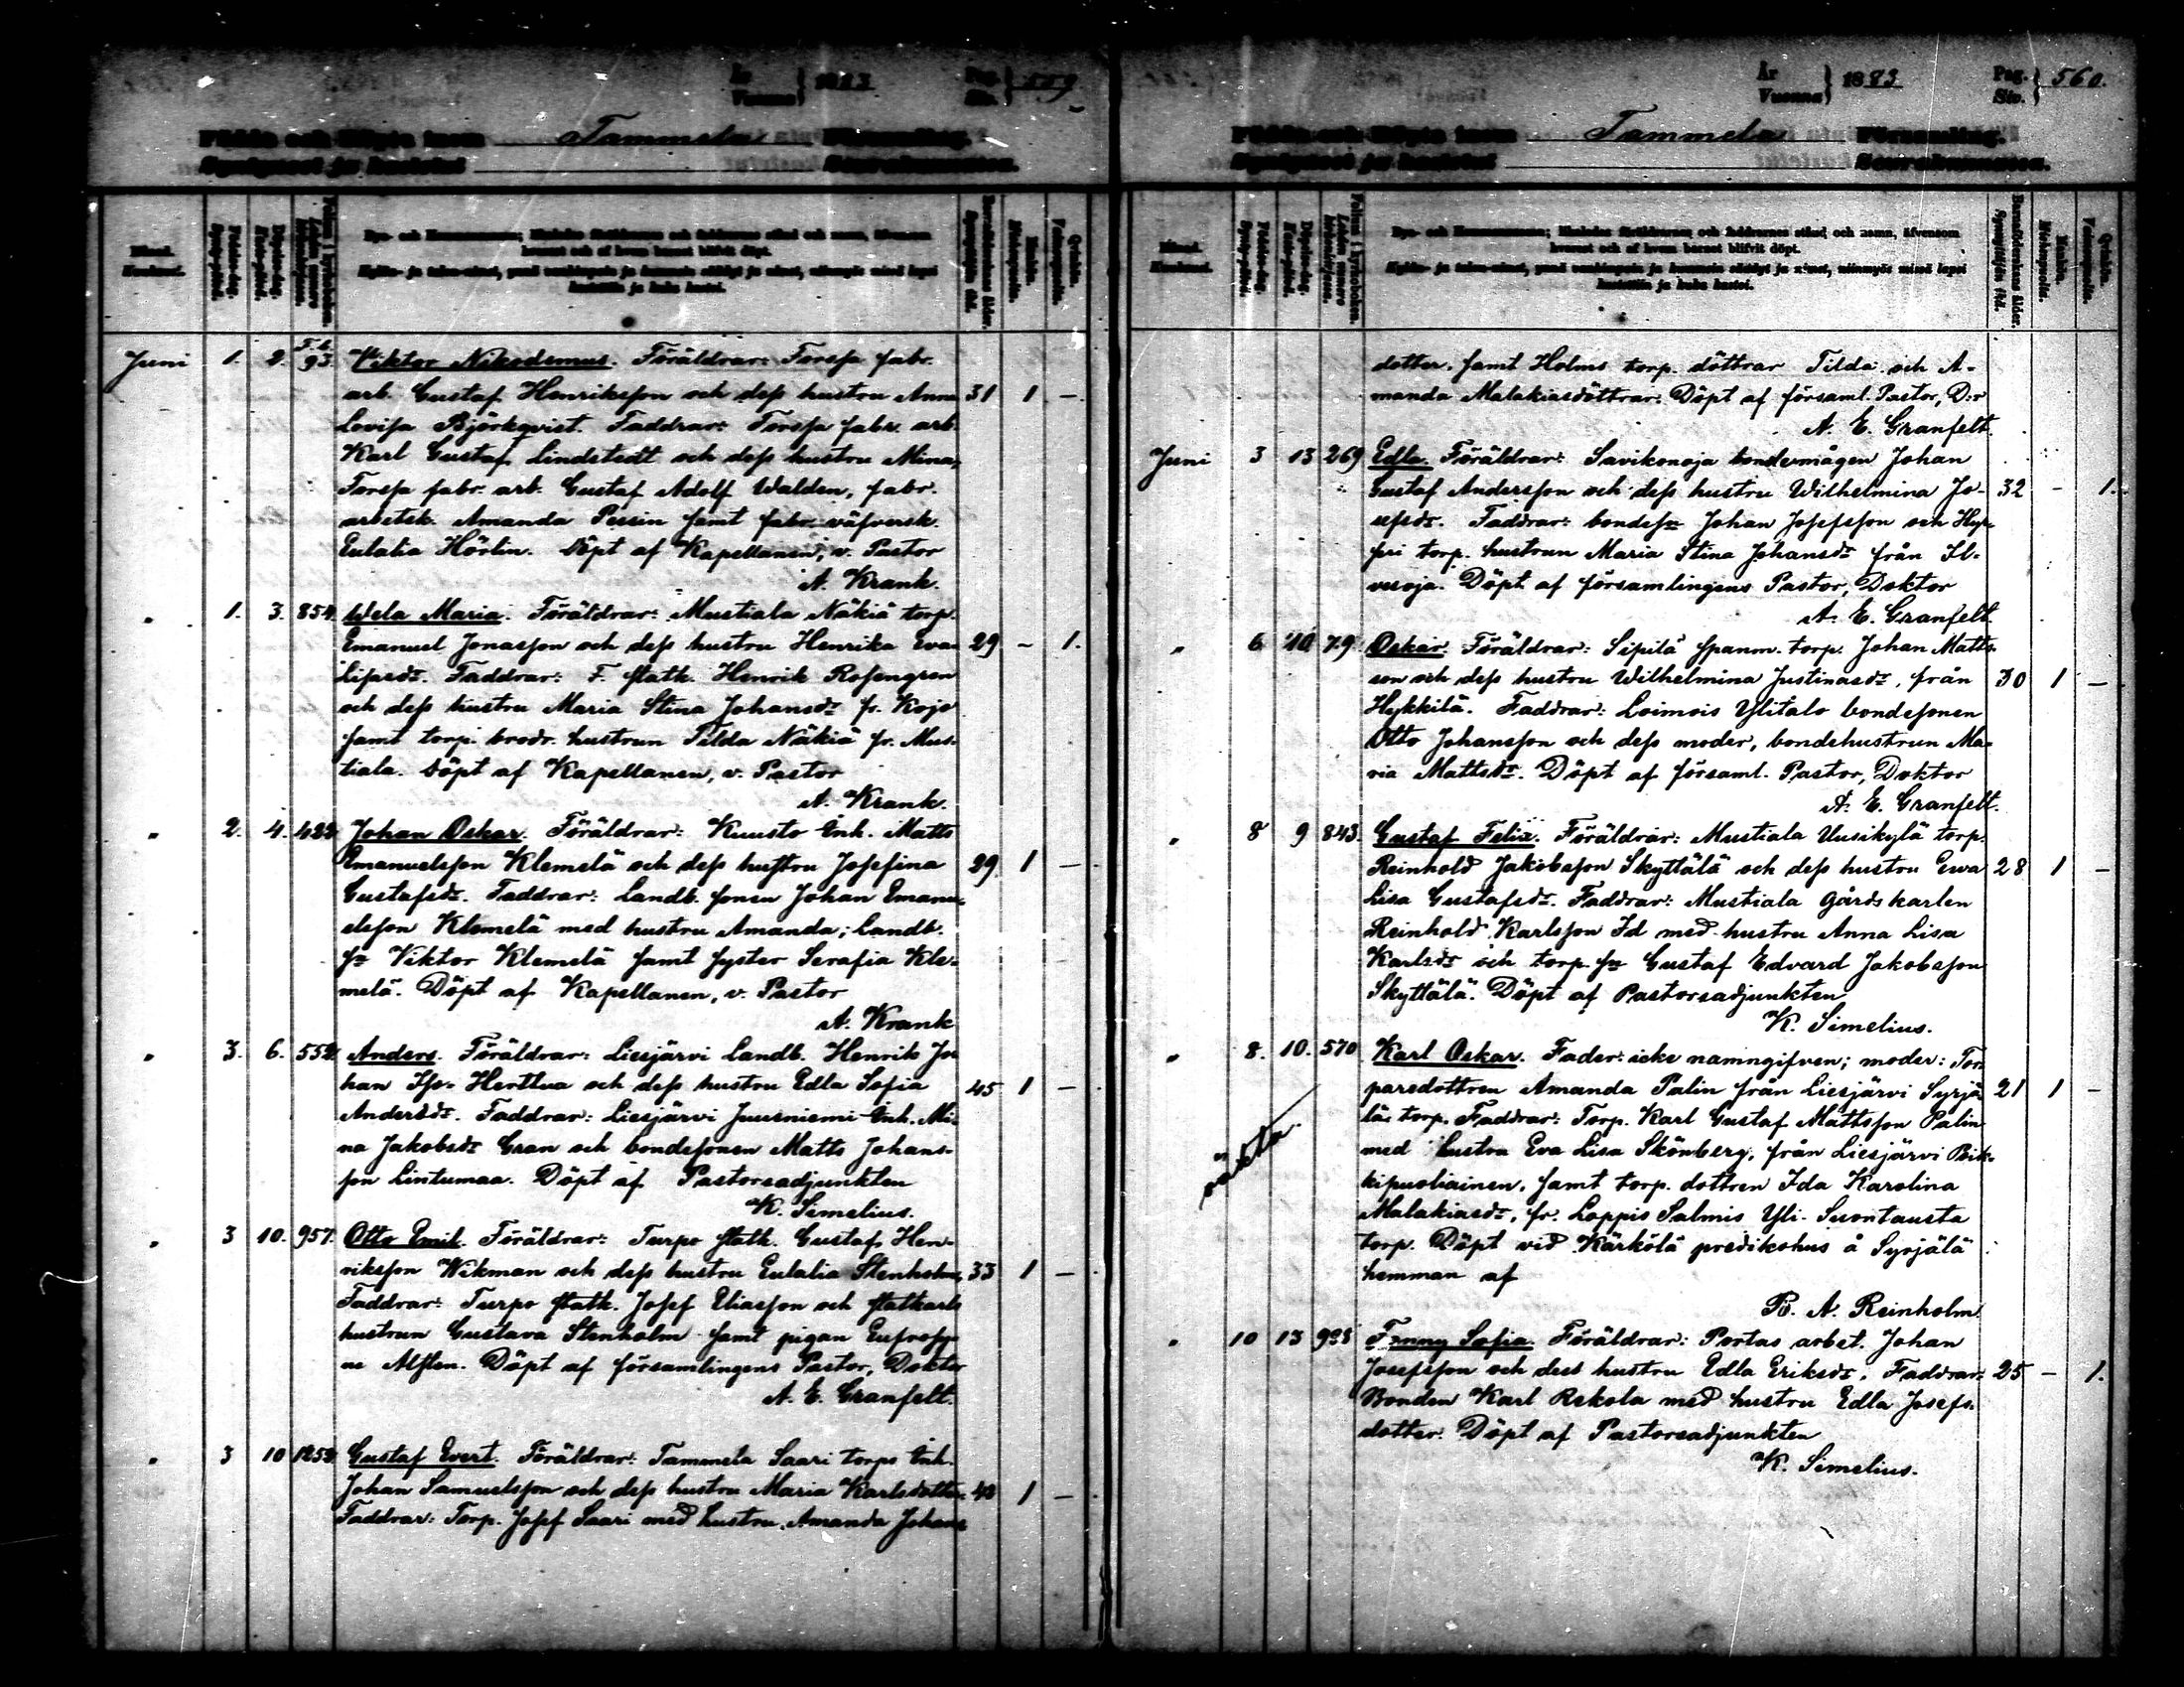 År
Vuonna } 1883
Pag.
Siv. } 559
Födde och Döpte inom Tammela Församling.
Syntyneet ja kastetut Seurakunnassa.
Månad.
Kuukausi.
Födelse-dag.
Syntymä-päivä.
Döpelse-dag.
Kaste-päivä.
By- och Hemmansnamn; Barnets föräldrarnes och faddrarnes stånd och namn, äfvensom
hvarest och af hvem barnet blifvit döpt.
Kylän- ja talon-nimet, sekä vanhempain ja kummein säädyt ja nimet, niinmyös missä lapsi
kastettiin ja kuka kastoi.
Barnaföderskans ålder.
Synnyttäjän ikä.
Mankön.
Miehenpuolia.
Qvinkön.
Vaimonpuolia.
Juni 1. 2. 93 Viktor Nikodemus. Föräldrar: Forssa fabr.
arb. Gustaf Henriksson och dess hustru Anna 31 1 –
Lovisa Björkqvist. Faddrar: Forssa fabr. arb.
Karl Gustaf Lindstedt och dess hustru Mina,
Forssa fabr. arb. Gustaf Adolf Walden, fabr.
arbetsk. Amanda Persin samt fabr. väfversk.
Eulalia Hörlin. Döpt af Kapellanen, v. Pastor
A. Krank.
" 1. 3. 854 Wela Maria. Föräldrar: Mustiala Näkiä torp.
Emanuel Jonasson och dess hustru Henrika Eva 29 – 1.
Lisasdr. Faddrar: F. statk. Henrik Rosengren
och dess hustru Maria Stina Johansdr fr. Kojo
samt torp. brodr. hustrun Tilda Näkiä fr. Mus-
tiala. Döpt af Kapellanen, v. Pastor
A. Krank.
" 2. 4. 422 Johan Oskar. Föräldrar: Kuusto Inh. Matts
Emanuelsson Klemelä och dess hustru Josefina 29 1 –
Gustafsdr. Faddrar: Landb. sonen Johan Emanu-
elsson Klemelä med hustru Amanda; Landb.
sn Viktor Klemelä samt syster Serafia Kle-
melä. Döpt af Kapellanen, v. Pastor
A. Krank
" 3. 6. 552 Anders. Föräldrar: Liesjärvi Landb. Henrik Jo-
han Iso-Herttua och dess hustru Edla Sofia 45 1 –
Andersdr. Faddrar: Liesjärvi Juusniemi Inh. Mi-
na Jakobsdr Gran och bondesonen Matts Johans-
son Lintumaa. Döpt af Pastorsadjunkten
K. Simelius.
" 3 10. 957 Otto Emil. Föräldrar: Turpo statk. Gustaf Hen-
riksson Wikman och dess hustru Eulalia Stenholm, 33 1 –
Faddrar: Turpo statk. Josef Eliasson och statkarls
hustrun Gustava Stenholm samt pigan Eufrosy-
ne Alsten. Döpt af församlingens Pastor, Doktor
A. E. Granfelt.
" 3 10 1252 Gustaf Evert. Föräldrar: Tammela Saari torps Inh.
Johan Samuelsson och dess hustru Maria Karlsdotter. 42 1 –
Faddrar: Torp. Josef Saari med hustru Amanda Johans-
År
Vuonna } 1883
Pag.
Siv. } 560.
Födde och Döpte inom Tammela Församling.
Syntyneet ja kastetut Seurakunnassa.
Månad.
Kuukausi.
Födelse-dag.
Syntymä-päivä.
Döpelse-dag.
Kaste-päivä.
By- och Hemmansnamn; Barnets föräldrarnes och faddrarnes stånd och namn, äfvensom
hvarest och af hvem barnet blifvit döpt.
Kylän- ja talon-nimet, sekä vanhempain ja kummein säädyt ja nimet, niinmyös missä lapsi
kastettiin ja kuka kastoi.
Barnaföderskans ålder.
Synnyttäjän ikä.
Mankön.
Miehenpuolia.
Qvinkön.
Vaimonpuolia.
dotter, samt Holms torp. döttrar Tilda och A-
manda Malakiasdöttrar. Döpt af församl. Pastor, D:r
A. E. Granfelt.
Juni 3 13 269 Edla. Föräldrar: Savikonoja bondemågen Johan
Gustaf Andersson och dess hustru Wilhelmina Jo- 32 – 1.
sefsdr. Faddrar: bondesn Johan Josefsson och Hyp-
pri torp. hustrun Maria Stina Johansdr från Il-
vesoja. Döpt af församlingens Pastor, Doktor
A. E. Granfelt.
" 6 10 79. Oskar. Föräldrar: Sipilä spanm. torp. Johan Matts-
son och dess hustru Wilhelmina Justinasdr, från 30 1 –
Hykkilä. Faddrar: Loimois Ylitalo bondesonen
Otto Johansson och dess moder, bondehustrun Ma-
ria Mattsdr. Döpt af församl. Pastor, Doktor
A. E. Granfelt.
" 8 9 843. Gustaf Felix. Föräldrar: Mustiala Uusikylä torp.
Reinhold Jakobsson Skyttälä och dess hustru Ewa 28 1 –
Lisa Gustafsdr. Faddrar: Mustiala gårdskarlen
Reinhold Karlsson Id med hustru Anna Lisa
Karlsdr och torp. sn Gustaf Edvard Jakobsson
Skyttälä. Döpt af Pastorsadjunkten
K. Simelius.
" 8. 10. 570 Karl Oskar. Fader: icke namngifven; moder: Tor-
paredottren Amanda Palin från Liesjärvi Syrjä- 21 1 –
lä torp. Faddrar: Torp. Karl Gustaf Mattsson Palin
med hustru Eva Lisa Skönberg, från Liesjärvi Pik-
kipuoliainen, samt torp. dottren Ida Karolina
Malakiasdr, fr. Loppis Salmis Yli-Suontausta
torp. Döpt vid Kärkölä predikohus å Syrjälä
hemman af
B. A. Reinholm.
oäkta.
" 10 13 Fanny Sofia. Föräldrar: Portas arbet. Johan
Josefsson och dess hustru Edla Eriksdr. Faddrar: 25 – 1.
Bonden Karl Rekola med hustru Edla Josefs-
dotter. Döpt af Pastorsadjunkten
K. Simelius.